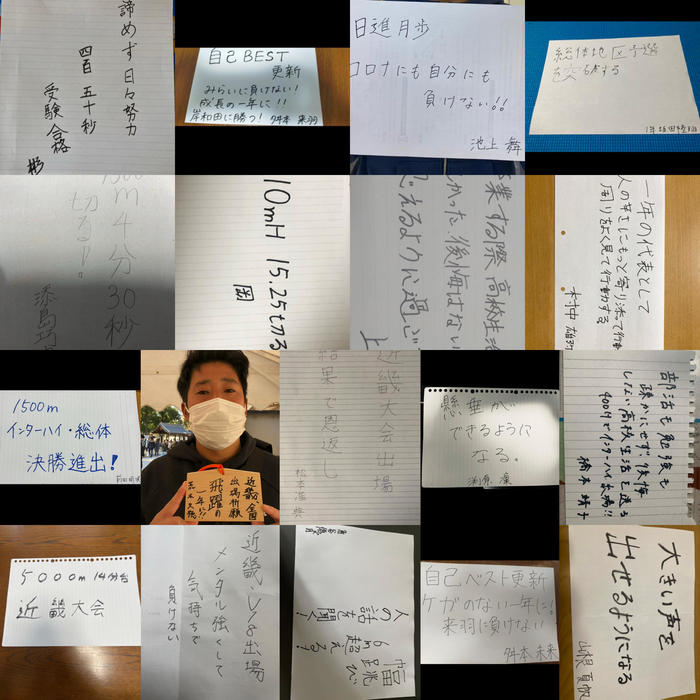 諦めず日々努力
四百 五十秒
受験合格
彬
自己BEST
更新
みらいに負けない!
成長の一年に!!
岸和田に勝つ!
舛本 来羽
日進月歩
コロナにも自分にも
負けない!!
池上 舞
総体地区予選
を突破する
1年
m4分30秒
切る!
添島
10mH 15.25切る
園
業する際、高校生活
かった、後悔はない
えるように過ご
上
一年の代表として
人の辛さにもっと寄り添って行動
周りをよく見て行動する
村中 雄
1500m
インターハイ・総体
決勝進出!
近畿、全国
出場祈願
飛躍の
一年に!!
近畿大会出場
結果で恩返し
松本
懸垂が
できるように
なる。
部活も勉強も
疎かにせず、後悔
しない高校生活を送る
400Hでインターハイ出場!!
橋本 靖
5000m 14分台
近畿大会
近畿・U18出場
メンタル強くして
気持ちで
負けない
幅跳び
6m超える!
人の話を聞く!
自己ベスト更新
ケガのない一年に!
来羽に負けない
舛本 未来
大きい声を
出せるようになる
山根 夏